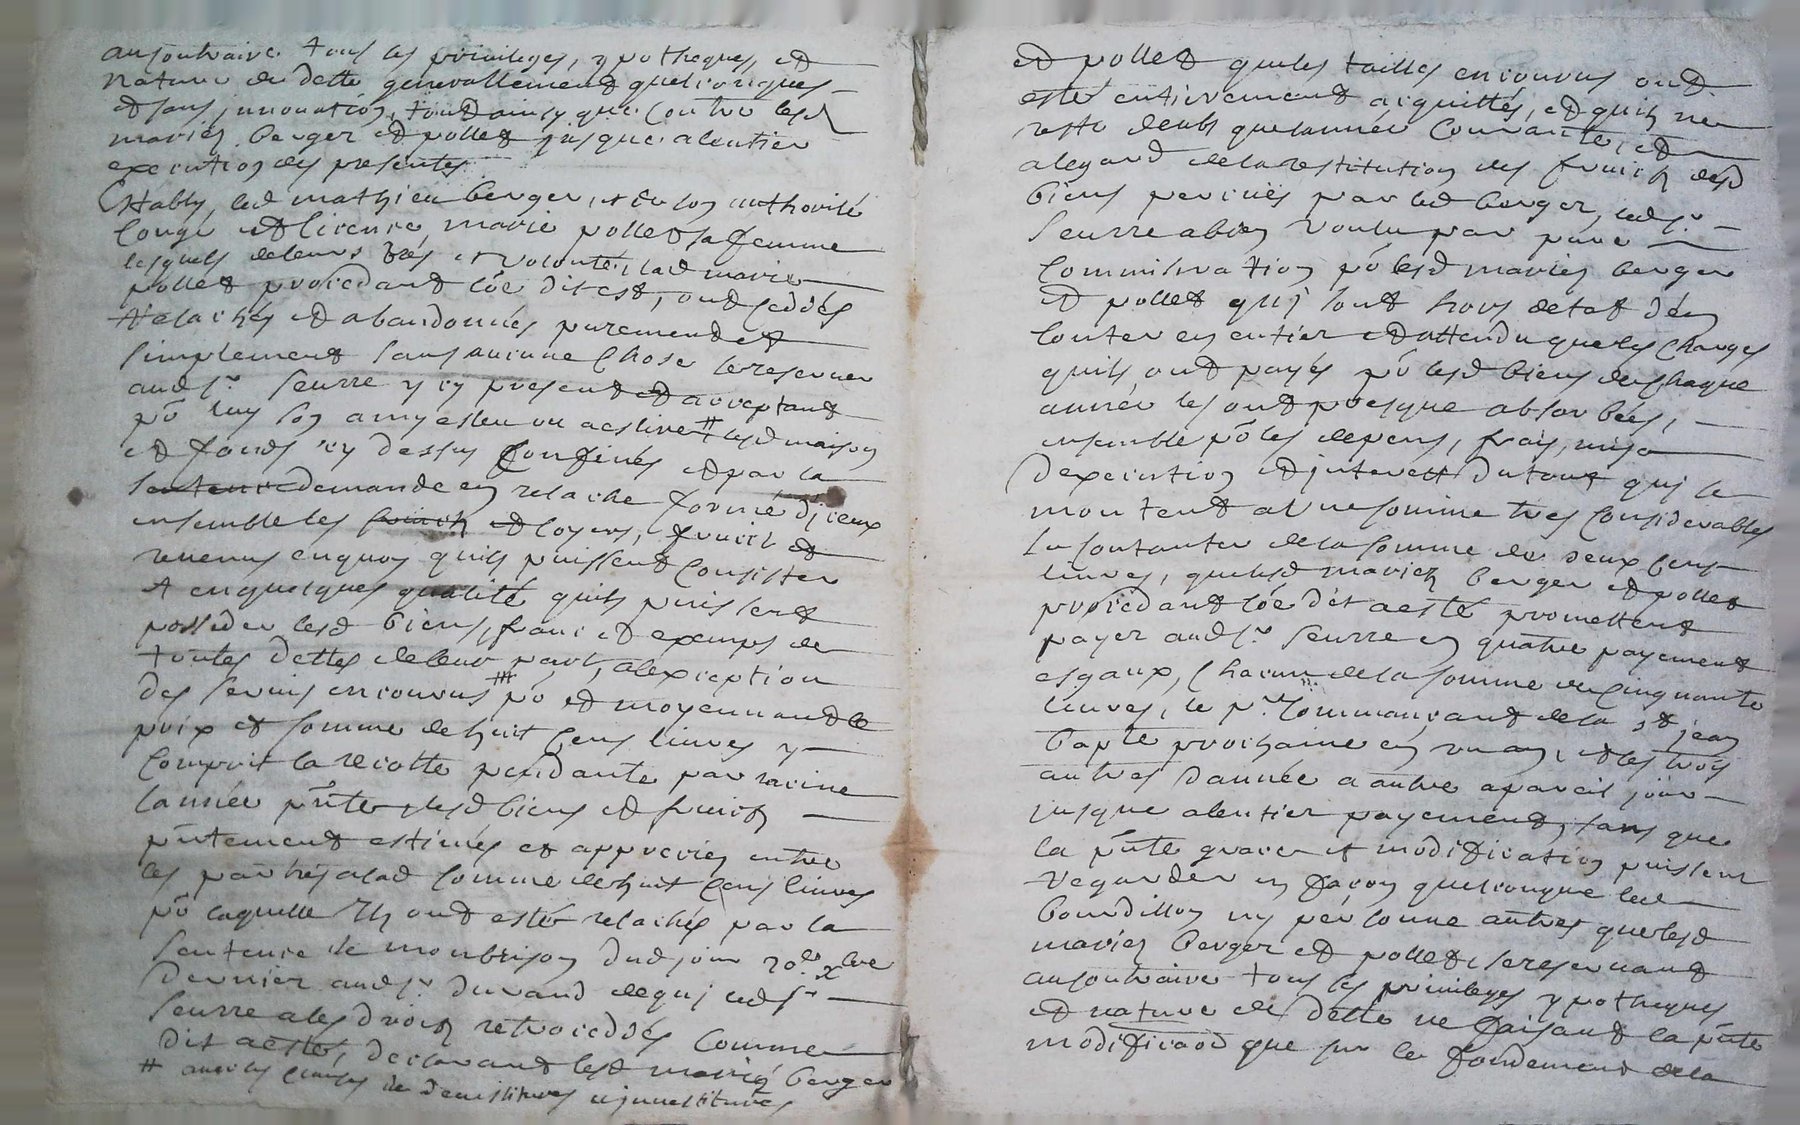 au contraire tous les privileges, ypotheques, et
nature de dette generallement quelconques
et sans innovation, tout ainsy que contre lesd
mariés berger et pollet jusque a lentier
execution des presentes
led mathieu berger, et de son authorité
congé et licence marie pollet sa femme
lesquels de leurs grés et volonté, lad marie
pollet procedant coe dit est, ont ceddés
relachés et abandonnés purement et
simplement sans aucune chose se reserver
aud sr seurre icy present et acceptant
pō luy son amy esleu ou a eslire # lesd maison
et fonds cy dessus confinés et par la
sentence demande en relache formé d'iceux
ensemble les fruits et loyers, fruict et
revenus en quoy quils puissent consister
et en quelques qualité quils puissent
posseder lesd biens, franc et exemps de
toutes dettes de leur part, a lexception
des servis encourus pō et moyennant le
prix et somme de huit cens livres y
compris la recolte pendante par racine
lannée pñte, lesd biens et fruits
pñtement estimés et appreciés entre
les parties a lad somme de huit cens livres
pō laquelle Ils ont esté relachés par la
sentence de montbrison dud jour 20e xbre
dernier aud sr durand de qui led sr
seurre a les droits retrocedés comme
dit a esté, declarant lesd mariés berger
# avec les clauses de devestitures investitures
et pollet que les tailles encourus ont
esté entierement acquittés, et quils ne
reste deubs que lannée courante, et
a legard de la restitution des fruits desd
biens percues par led berger, led sr
seurre a bien voulu par pure
commiseration pō lesd mariés berger
et pollet qui sont hors detat den
conter en entier et attendu que les charges
quils ont payés pō lesd biens de chaque
année les ont presque absorbées,
ensemble pō les depens, frais, mise
dexecution et interest du tout qui se
montent a une somme tres considerables
se contanter de la somme de deux cens
livres, que lesd mariés berger et pollet
procedant coe dit a esté promettent
payer aud sr seurre en quatre payement
esgaux, chacun de la somme de cinquante
livres, le pr commançant de la st jean
bapte prochaine en un an, et les trois
autres dannée a autre a pareil jour
jusque a lentier payement, sans que
la pñte grace et modification puissent
regarder en facon quelconque led
bourdillon ny personne autres que lesd
mariés berger et pollet, se reservant
au contraire tous les privileges ypotheques
et nature de dette ne faisant la pñte
modificaōn que sur le fondement de la